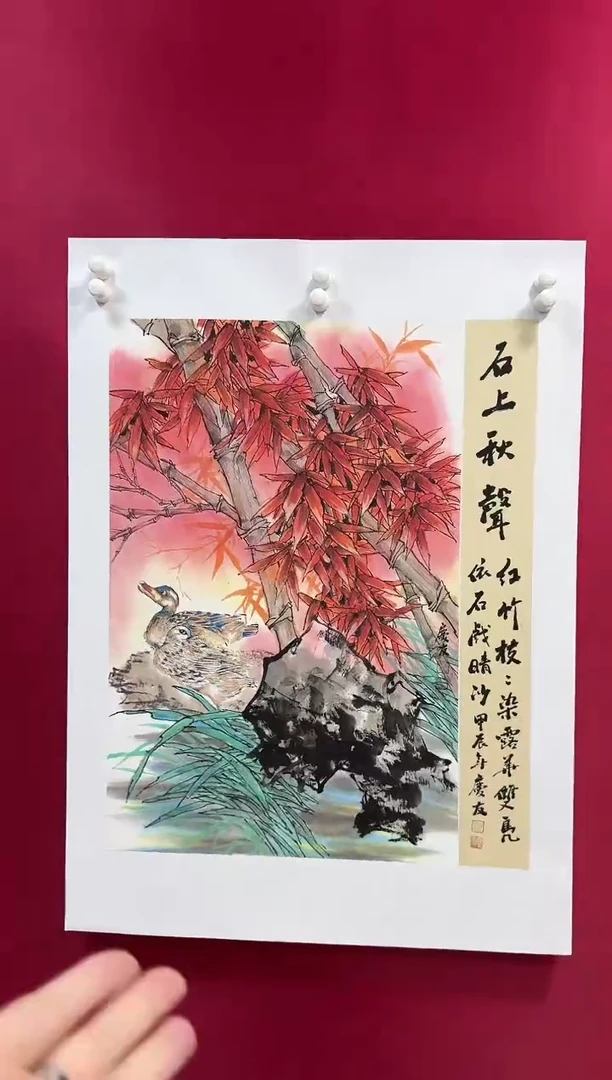 石上秋聲
红竹枝〻染露華雙鳧
依石戲晴沙 甲辰年慶友
慶友